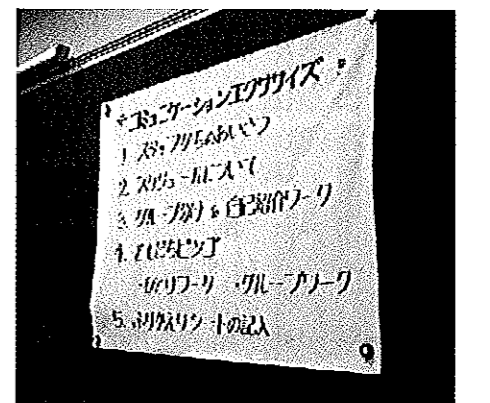 コミュニケーションエクササイズ
1. スタッフからのあいさつ
2. スケジュールについて
3. グループ分け & 自己紹介ワーク
4. ビンゴ
・ひとりワーク ・グループワーク
5. ふりかえりシートの記入
9